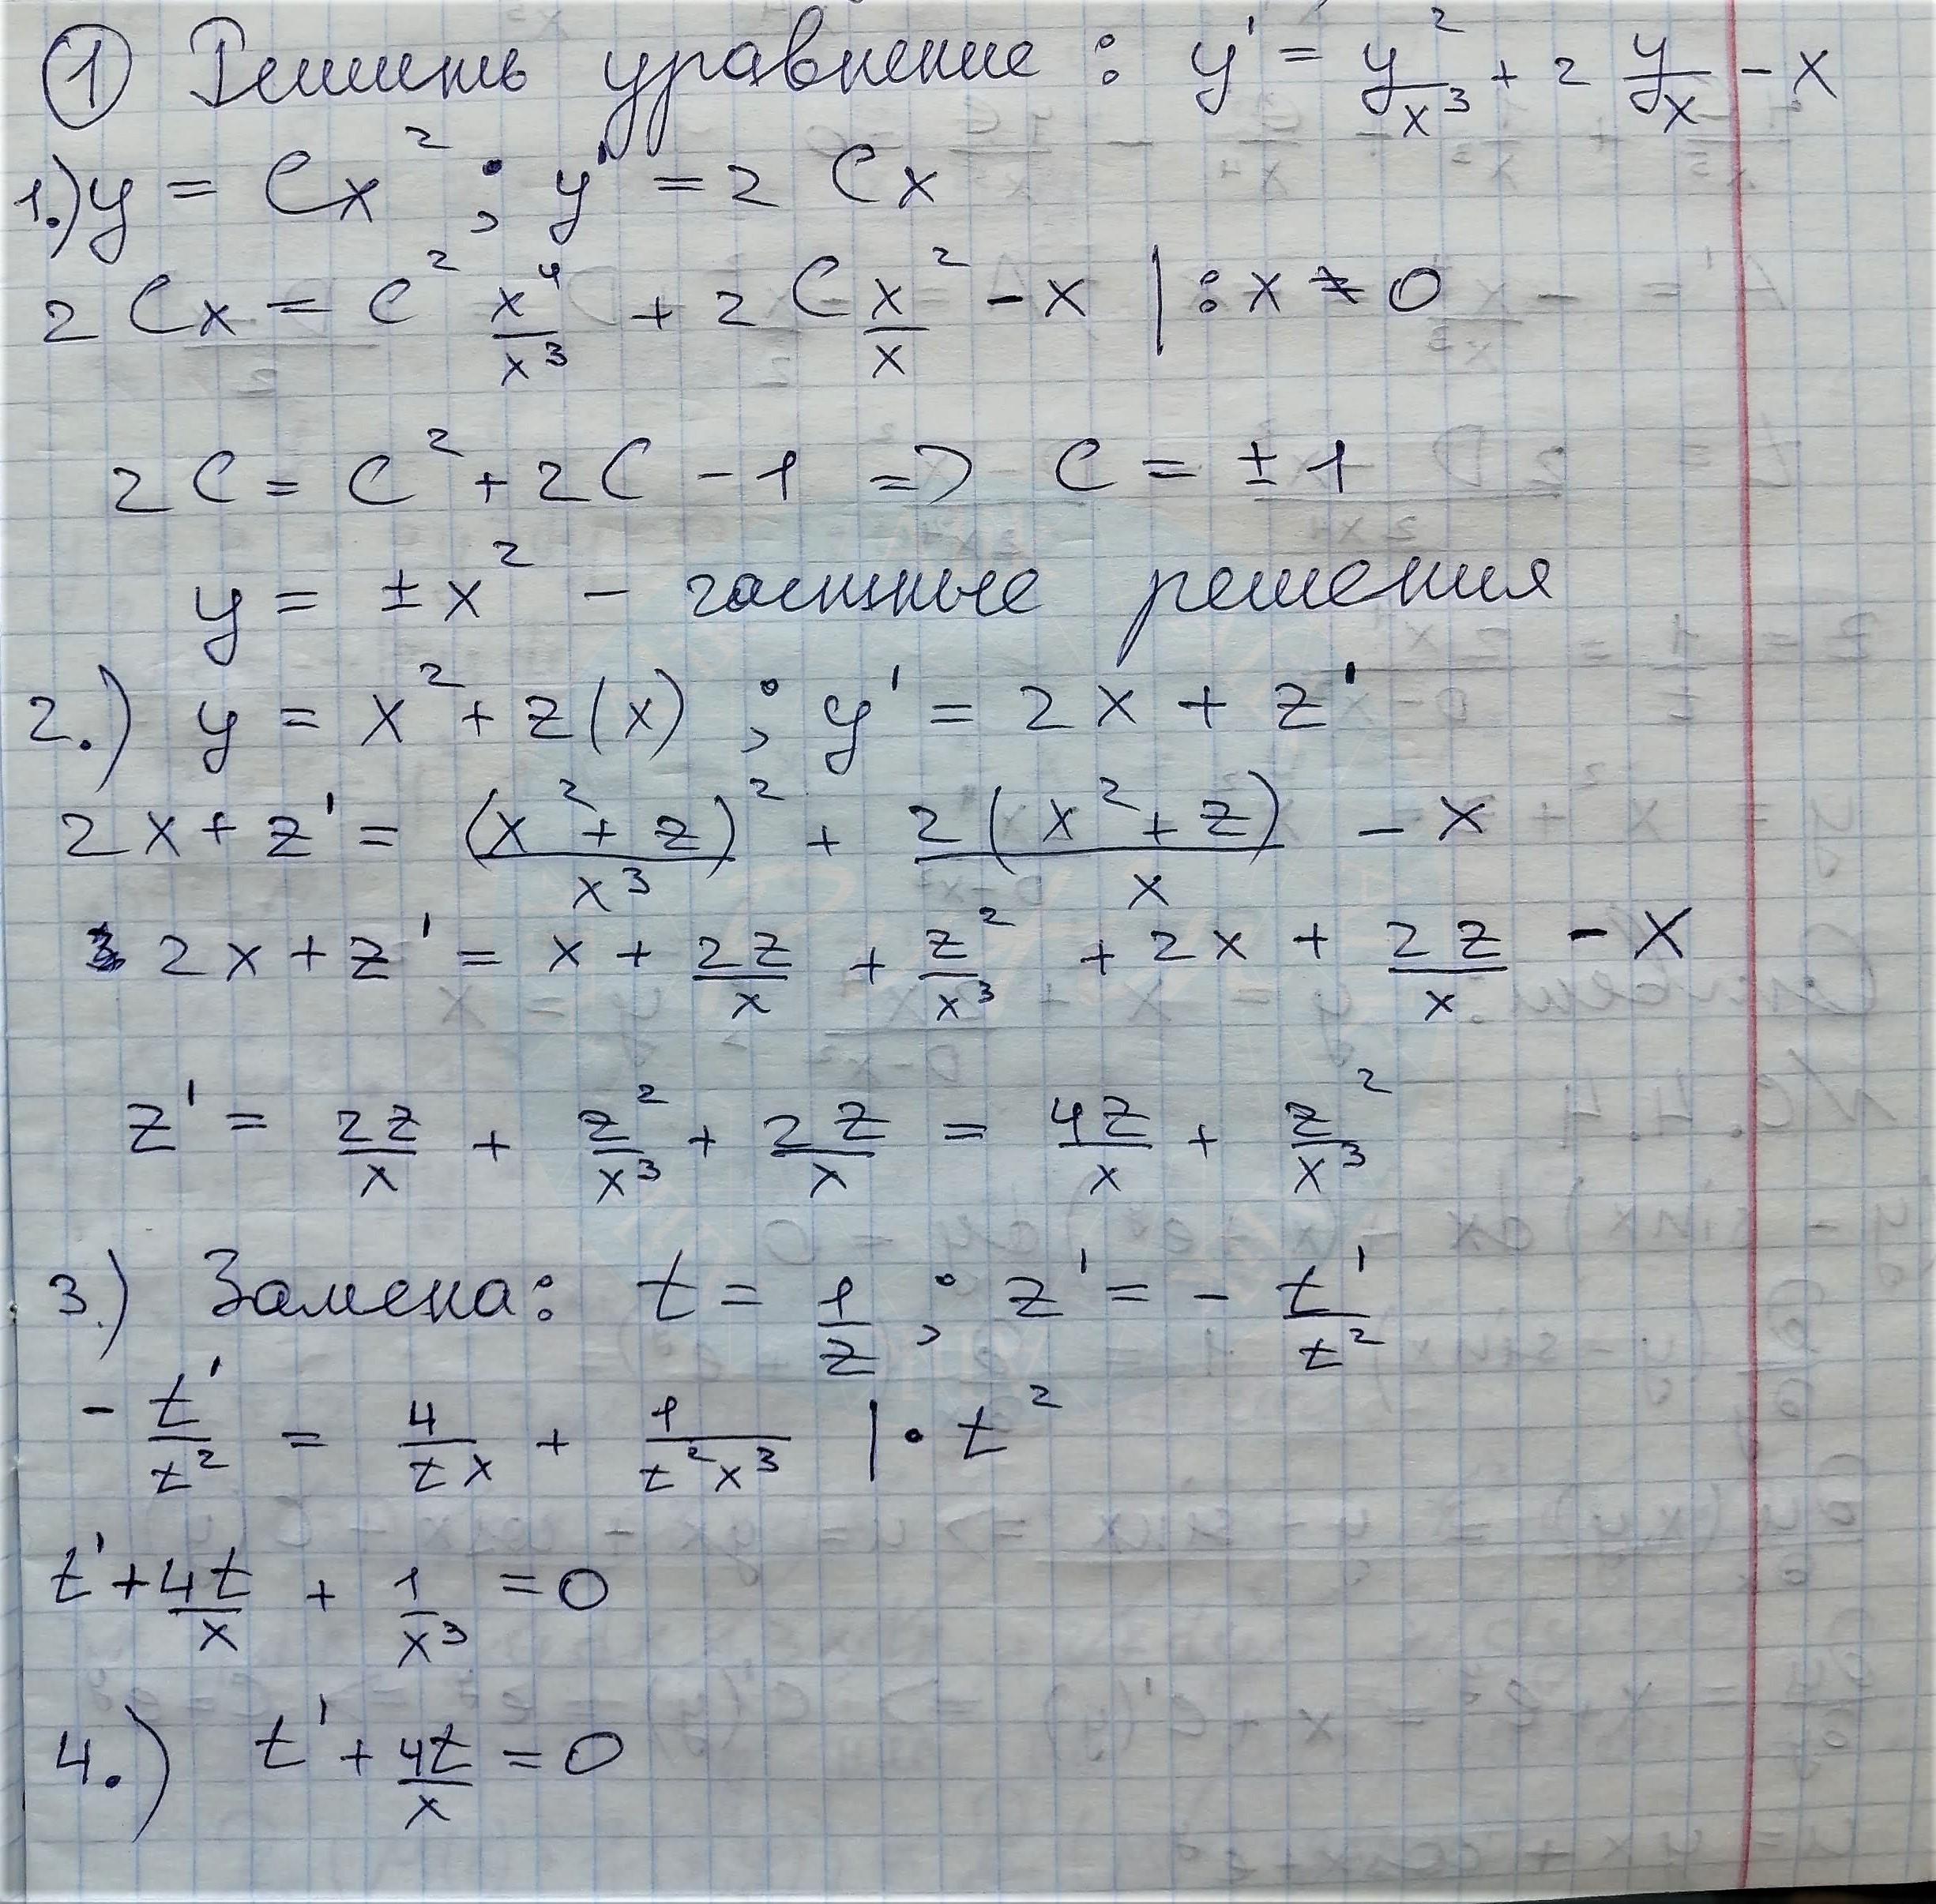 ① Решить уравнение : y' = y²/x³ + 2 y/x - x
1.) y = Cx² ; y' = 2 Cx
2 Cx = C² x⁴/x³ + 2 C x²/x - x | : x ≠ 0
2 C = C² + 2C - 1 => C = ± 1
y = ± x² - частные решения
2.) y = x² + z(x) ; y' = 2x + z'
2x + z' = (x² + z)²/x³ + 2(x² + z)/x - x
2x + z' = x + 2z/x + z²/x³ + 2x + 2z/x - x
z' = 2z/x + z²/x³ + 2z/x = 4z/x + z²/x³
3.) Замена: t = 1/z ; z' = - t'/t²
- t'/t² = 4/tx + 1/t²x³ | · t²
t' + 4t/x + 1/x³ = 0
4.) t' + 4t/x = 0